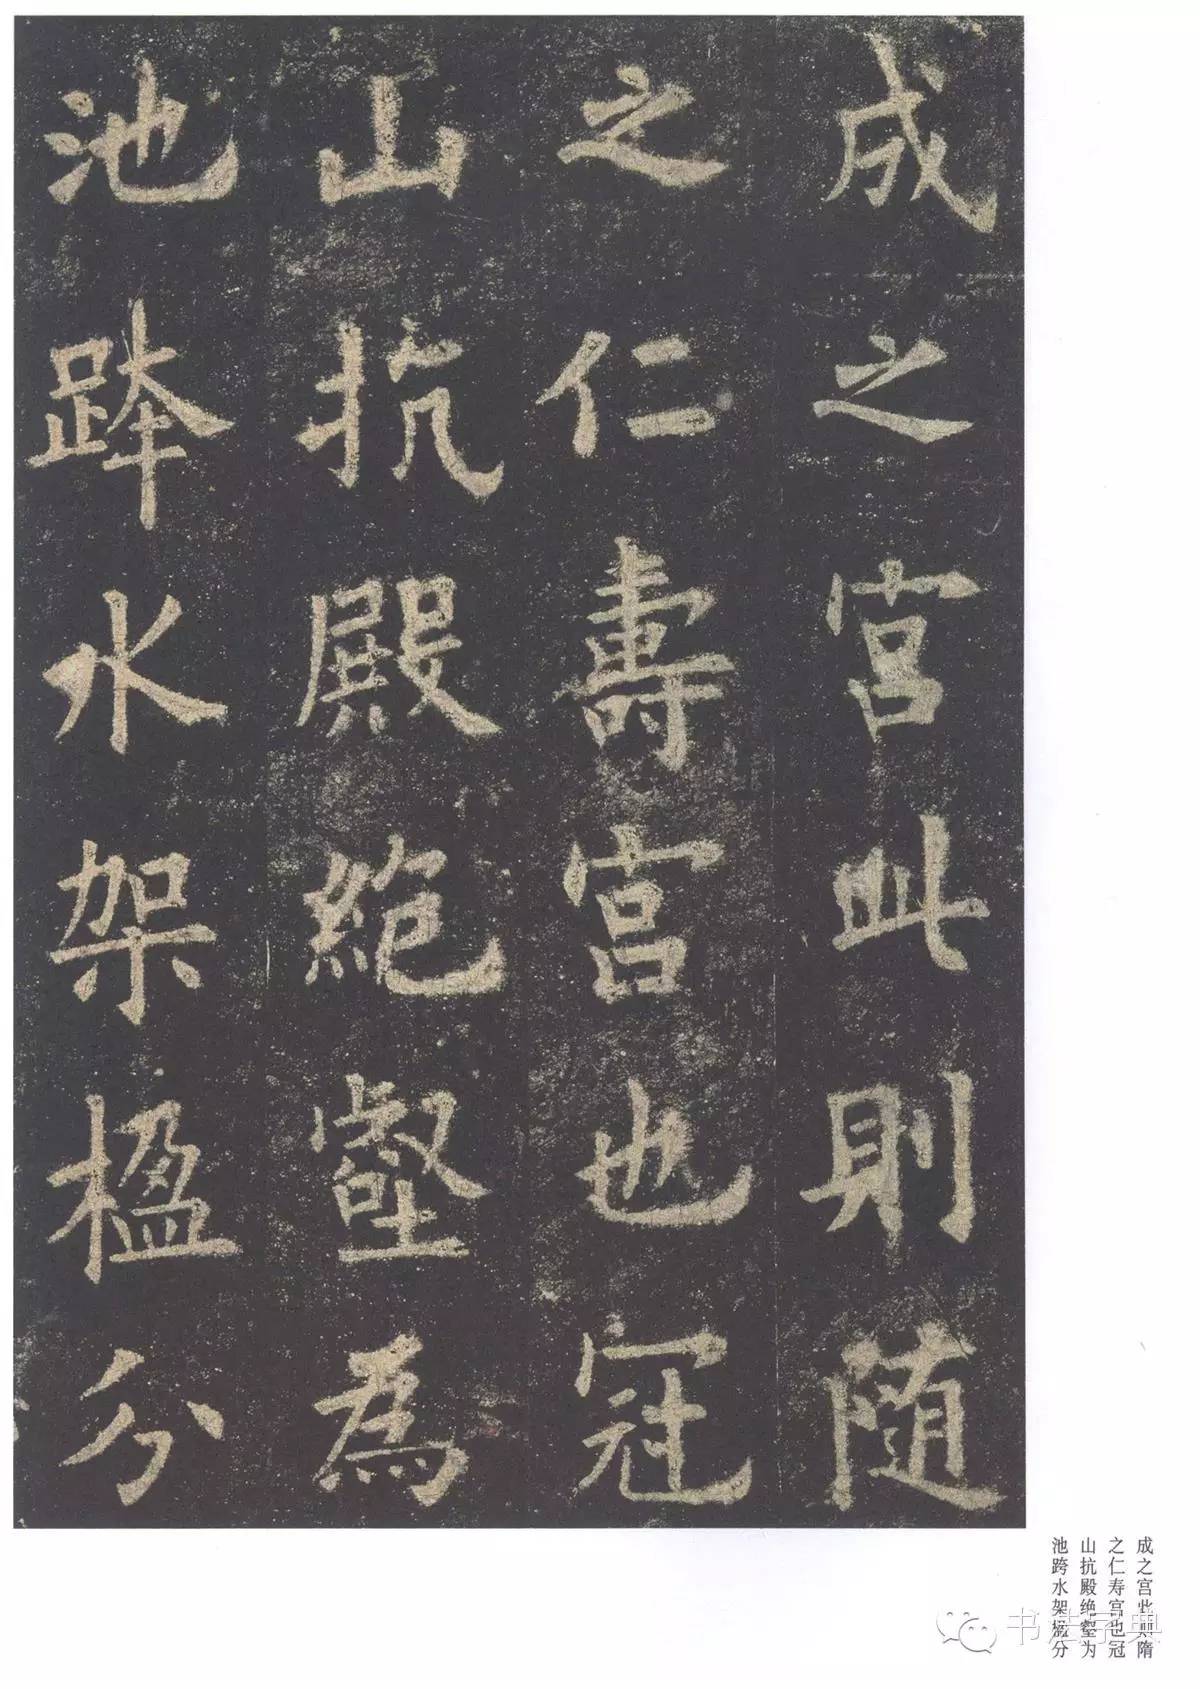 成之宫此則随
之仁壽宫也冠
山抗殿絶壑為
池跨水架楹分
成之宫此则隋
之仁寿宫也冠
山抗殿绝壑为
池跨水架楹分
书法字典